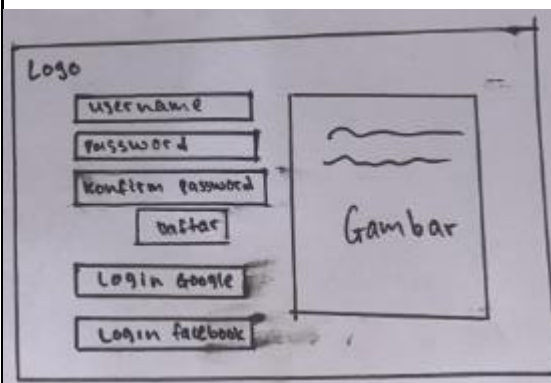 Logo
username
password
Konfirm password
Daftar
Login Google
Login facebook
Gambar